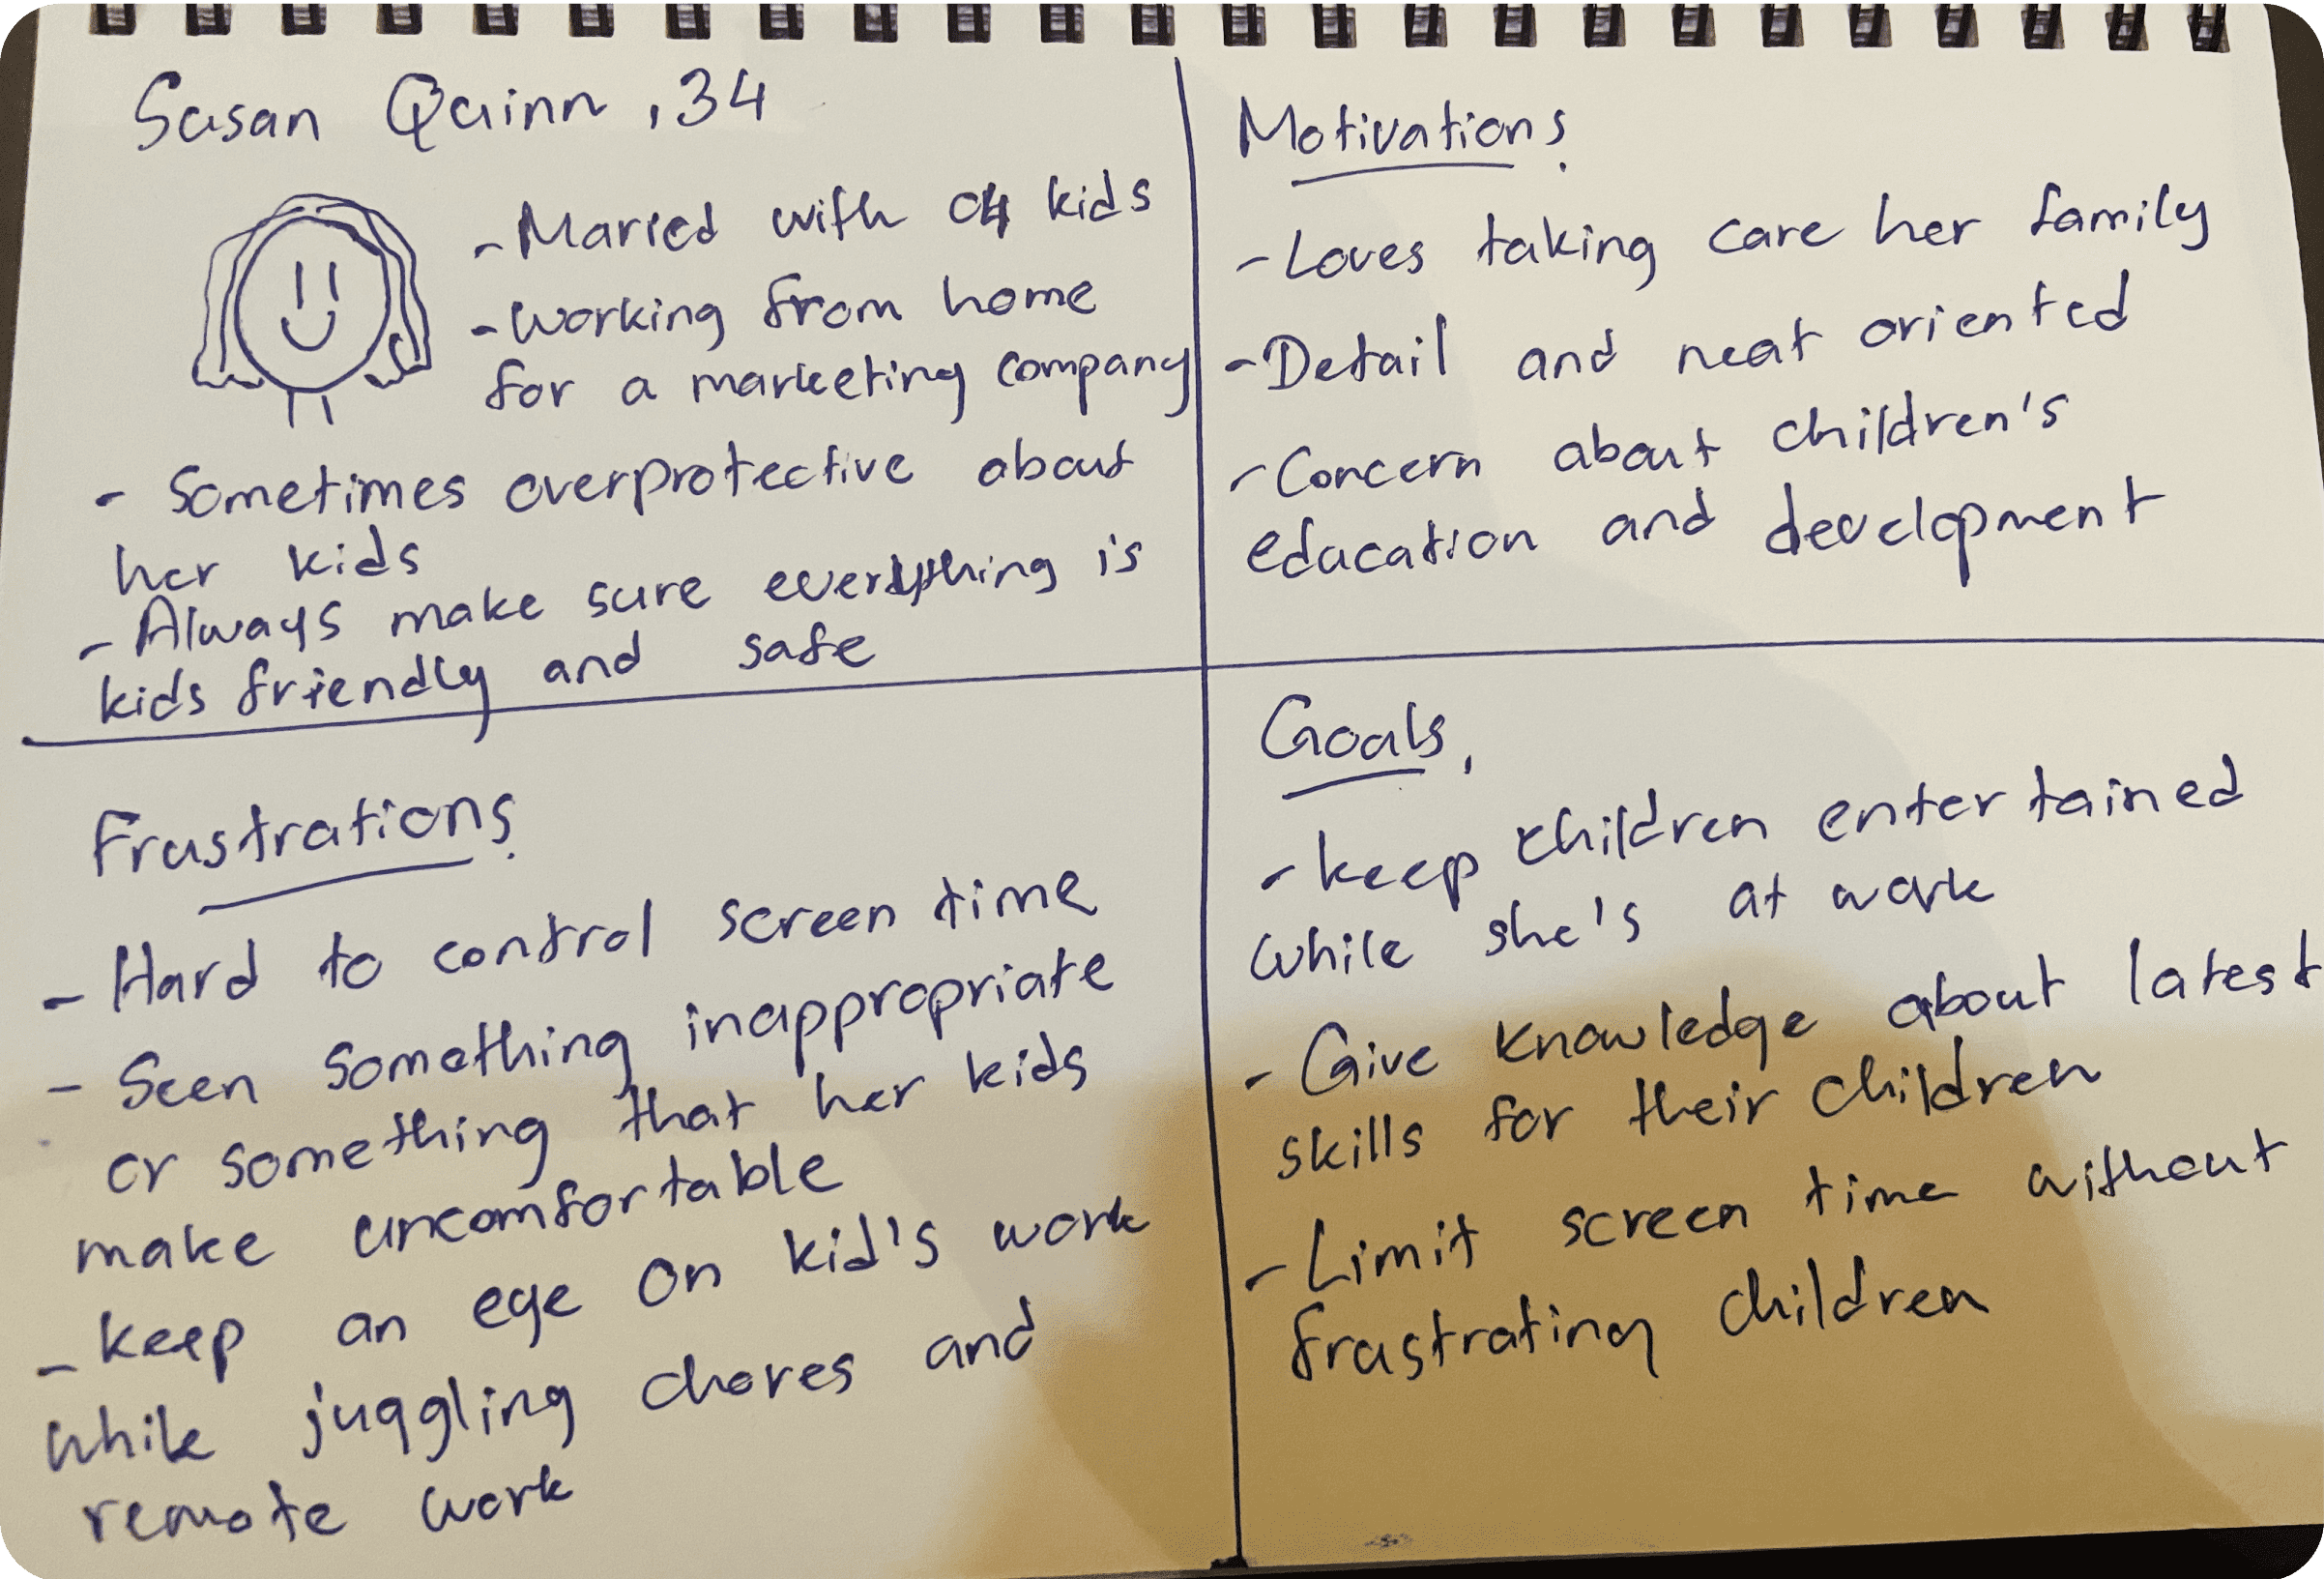 Susan Quinn, 34
- Maried with 04 kids
- Working from home
for a marketing company
- Sometimes overprotective about
her kids
- Always make sure everything is
kids friendly and safe
Motivations
- Loves taking care her family
- Detail and neat oriented
- Concern about children's
education and development
Frustrations
- Hard to control screen time
- Seen something inappropriate
or something that her kids
make uncomfortable
- keep an eye on kid's work
while juggling chores and
remote work
Goals
- keep children entertained
while she's at work
- Give knowledge about latest
skills for their children
- Limit screen time without
frustrating children